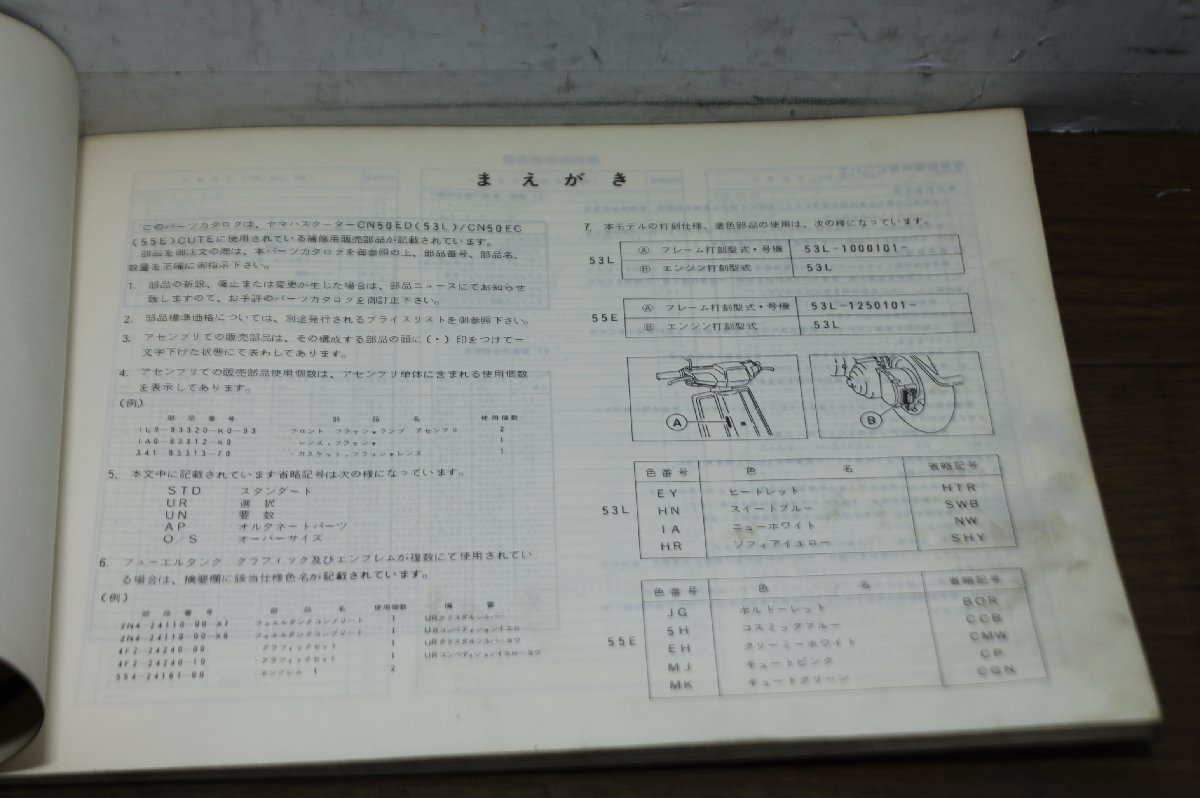 まえがき
このパーツカタログは、ヤマハスクーターCN50ED(53L)/CN50EC
(55E)CUTEに使用されている補修用販売部品が記載されています。
部品を御注文の際は、本パーツカタログを御参照の上、部品番号、部品名、
数量を正確に御指示下さい。
1. 部品の新設、廃止または変更が生じた場合は、部品ニュースにてお知らせ
致しますので、お手許のパーツカタログを御訂正下さい。
2. 部品標準価格については、別途発行されるプライスリストを御参照下さい。
3. アセンブリでの販売部品は、その構成する部品の頭に(・)印をつけて一
文字下げた状態にて表わしてあります。
4. アセンブリでの販売部品使用個数は、アセンブリ単体に含まれる使用個数
を表示してあります。
(例)
部品番号 部品名 使用個数
1L9-83320-K0-93 フロント フラッシャランプ アセンブリ 2
1A0-83312-K0 ・レンズ,フラッシャ 1
341-83313-70 ・ガスケット,フラッシャレンズ 1
5. 本文中に記載されています省略記号は次の様になっています。
STD スタンダード
UR 選択
UN 要数
AP オルタネートパーツ
O/S オーバーサイズ
6. フューエルタンク グラフィック及びエンブレムが複数にて使用されてい
る場合は、摘要欄に該当仕様色名が記載されています。
(例)
部品番号 部品名 使用個数 摘要
2N4-24110-00-X7 フュエルタンクコンプリート 1 URクリスタルシルバー
2N4-24110-00-X8 フュエルタンクコンプリート 1 URコンペティションイエロー
4F2-24240-00 ・グラフィックセット 1 URクリスタルシルバーヨウ
4F2-24240-10 ・グラフィックセット 1 URコンペティションイエローヨウ
5S4-24161-00 ・エンブレム 1 2
7. 本モデルの打刻仕様、塗色部品の使用は、次の様になっています。
53L
Ⓐ フレーム打刻型式・号機 53L-1000101~
Ⓑ エンジン打刻型式 53L
55E
Ⓐ フレーム打刻型式・号機 53L-1250101~
Ⓑ エンジン打刻型式 53L
Ⓐ Ⓑ
53L
色番号 色名 省略記号
EY ヒートレッド HTR
HN スイートブルー SWB
IA ニューホワイト NW
HR ソフィアイエロー SHY
55E
色番号 色名 省略記号
JG ボルトーレッド BOR
5H コスミックブルー CCB
EH クリーミーホワイト CMW
MJ キュートピンク CP
MK キュートグリーン CGN